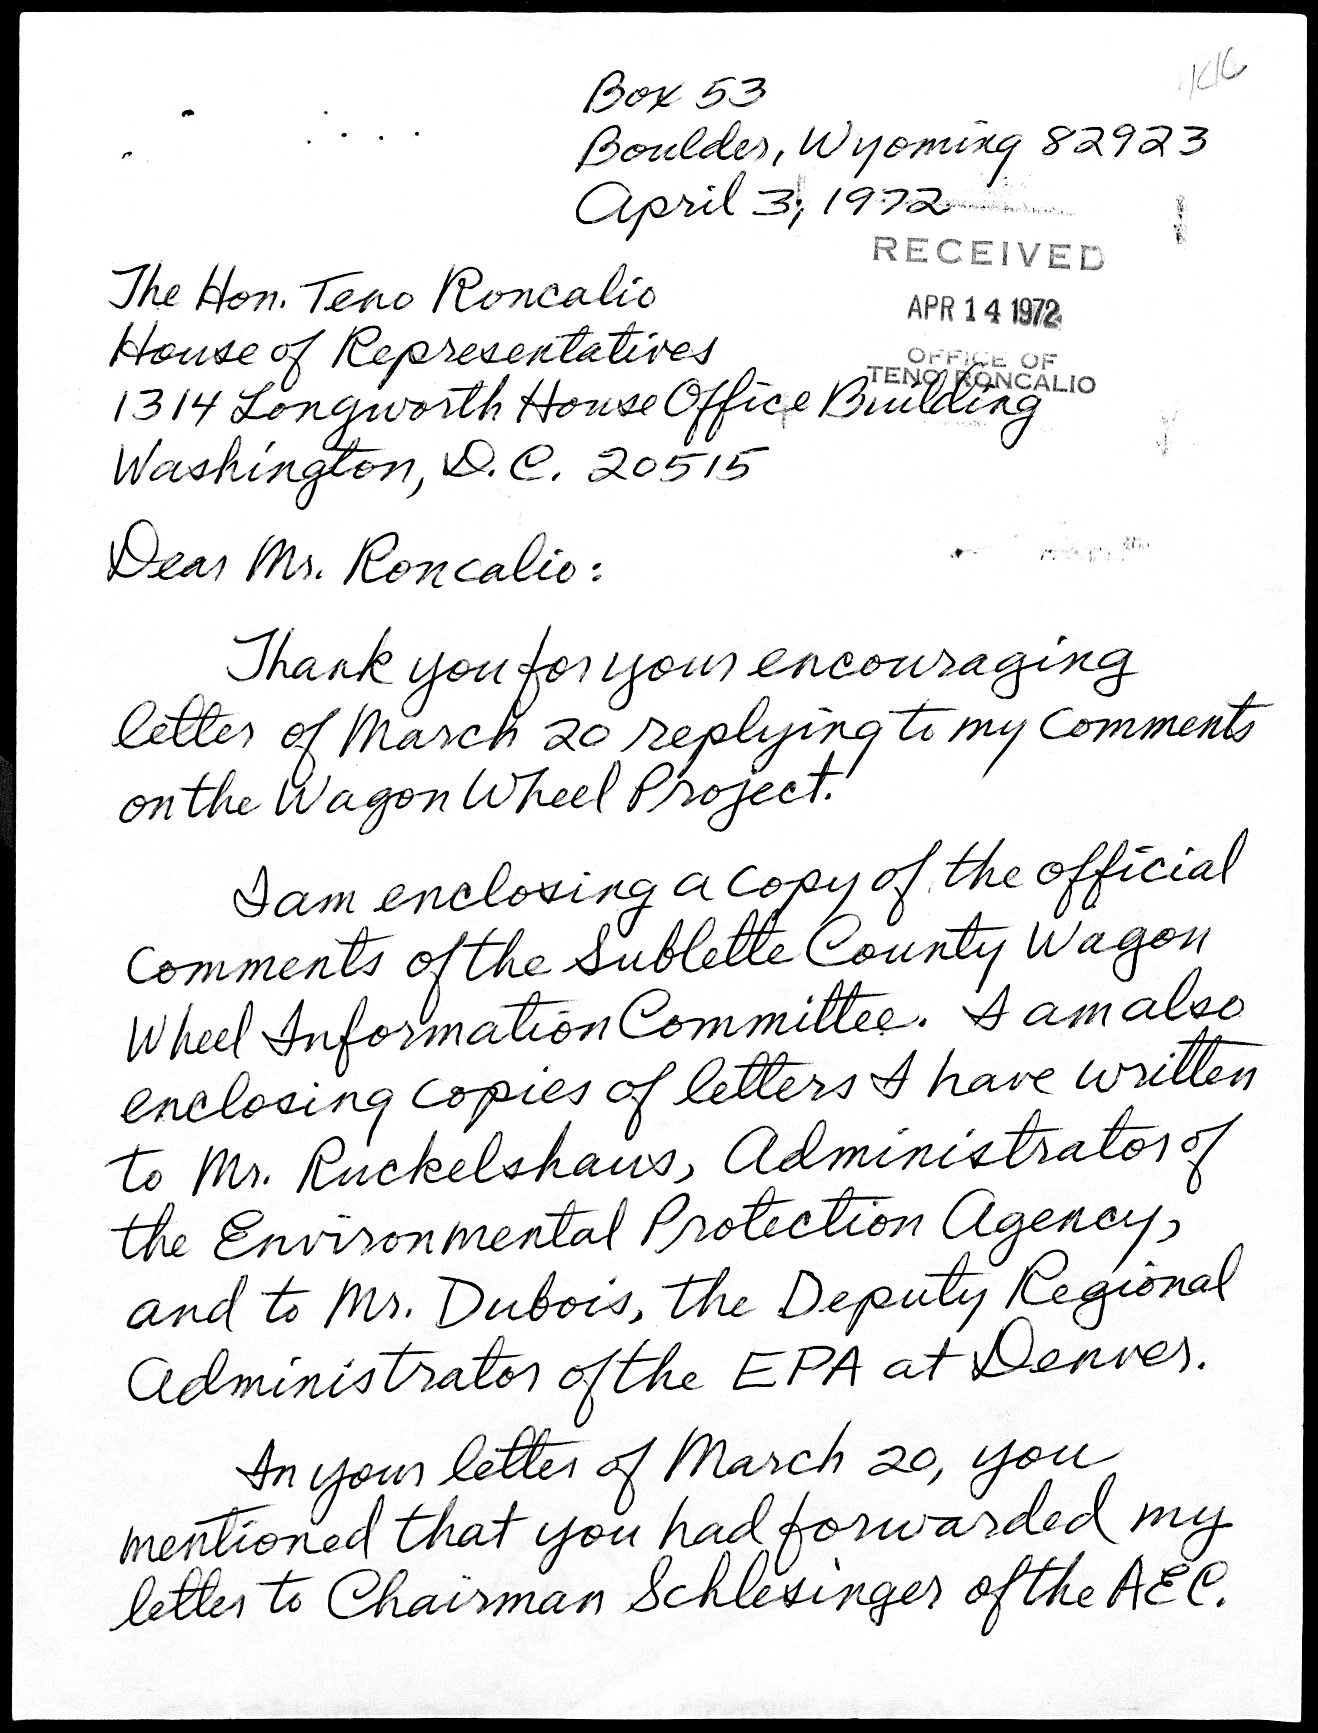 Box 53
Boulder, Wyoming 82923
April 3, 1972
RECEIVED
APR 14 1972
OFFICE OF
TENO RONCALIO
The Hon. Teno Roncalio
House of Representatives
1314 Longworth House Office Building
Washington, D.C. 20515
Dear Mr. Roncalio:
Thank you for your encouraging
letter of March 20 replying to my comments
on the Wagon Wheel Project.
I am enclosing a copy of the official
comments of the Sublette County Wagon
Wheel Information Committee. I am also
enclosing copies of letters I have written
to Mr. Ruckelshaus, Administrator of
the Environmental Protection Agency,
and to Mr. Dubois, the Deputy Regional
Administrator of the EPA at Denver.
In your letter of March 20, you
mentioned that you had forwarded my
letter to Chairman Schlesinger of the AEC.